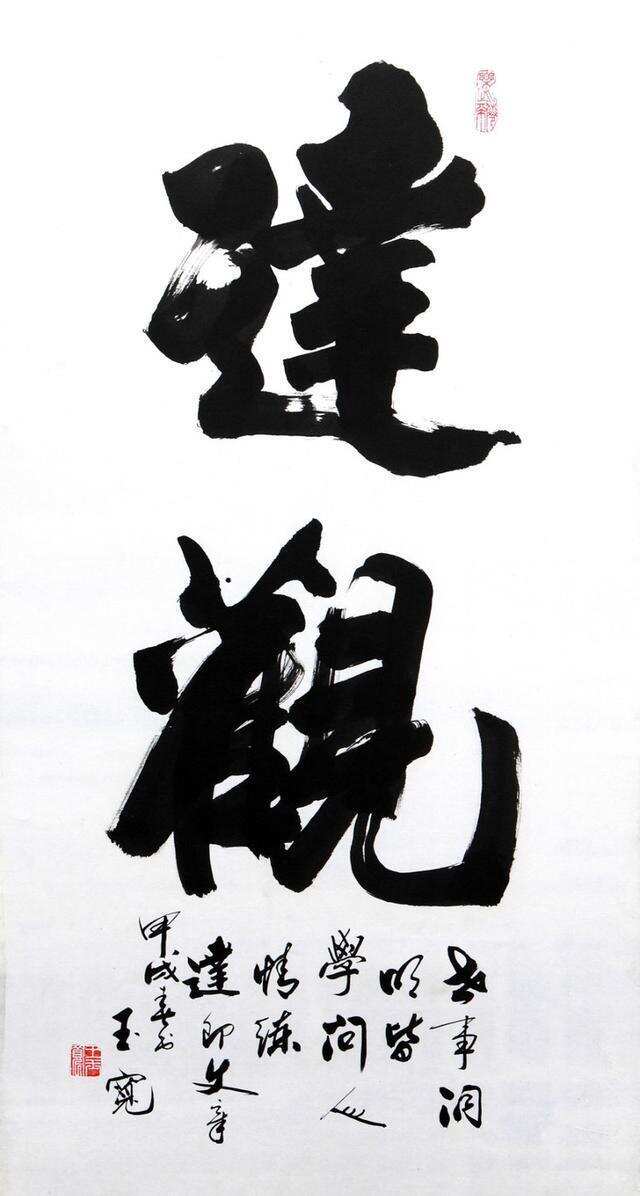 達觀
世事洞
明皆
學问人
情练
達即文章
甲戌春
玉寬